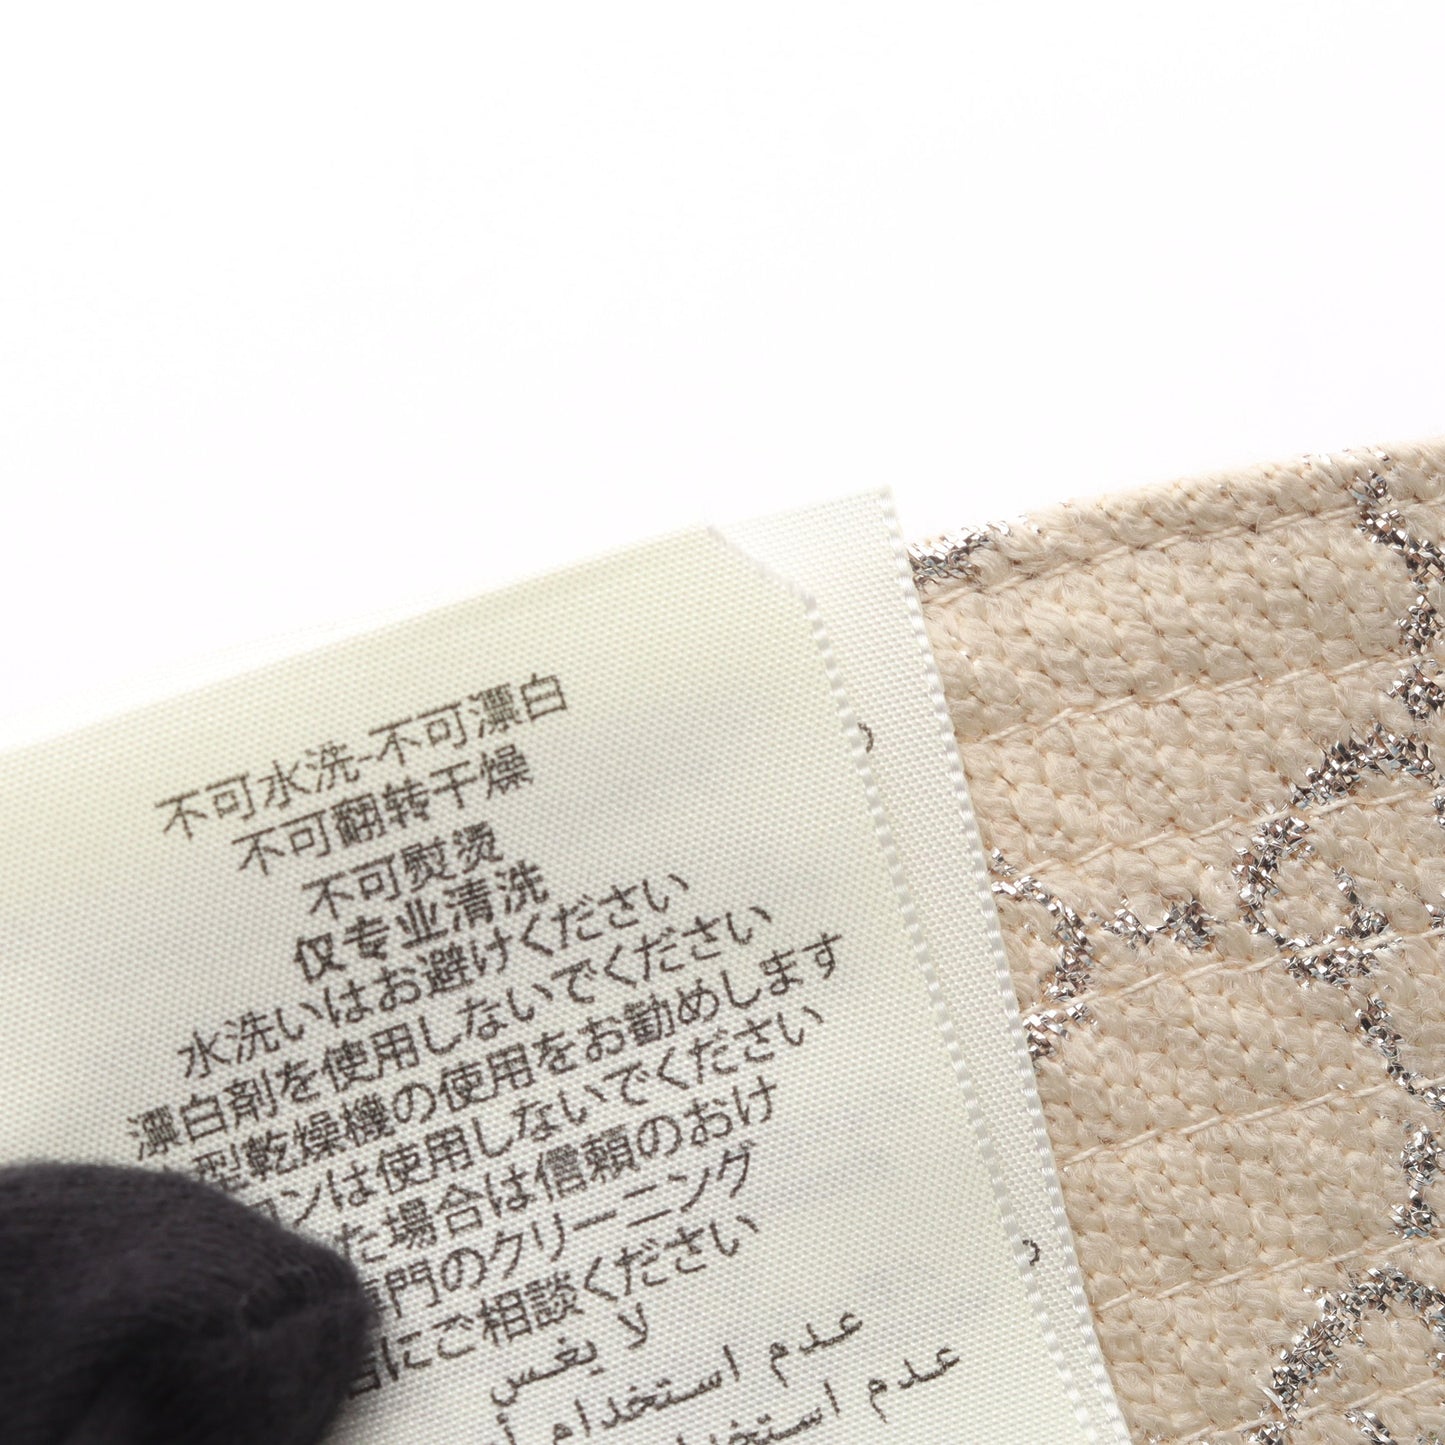 不可水洗-不可漂白
不可翻转干燥
不可熨烫
仅专业清洗
水洗いはお避けください
漂白剤を使用しないでください
型乾燥機の使用をお勧めします
ロンは使用しないでください
た場合は信頼のおけ
専門のクリーニング
にご相談ください
لا تغس
عدم استخدام أ
عدم استخد